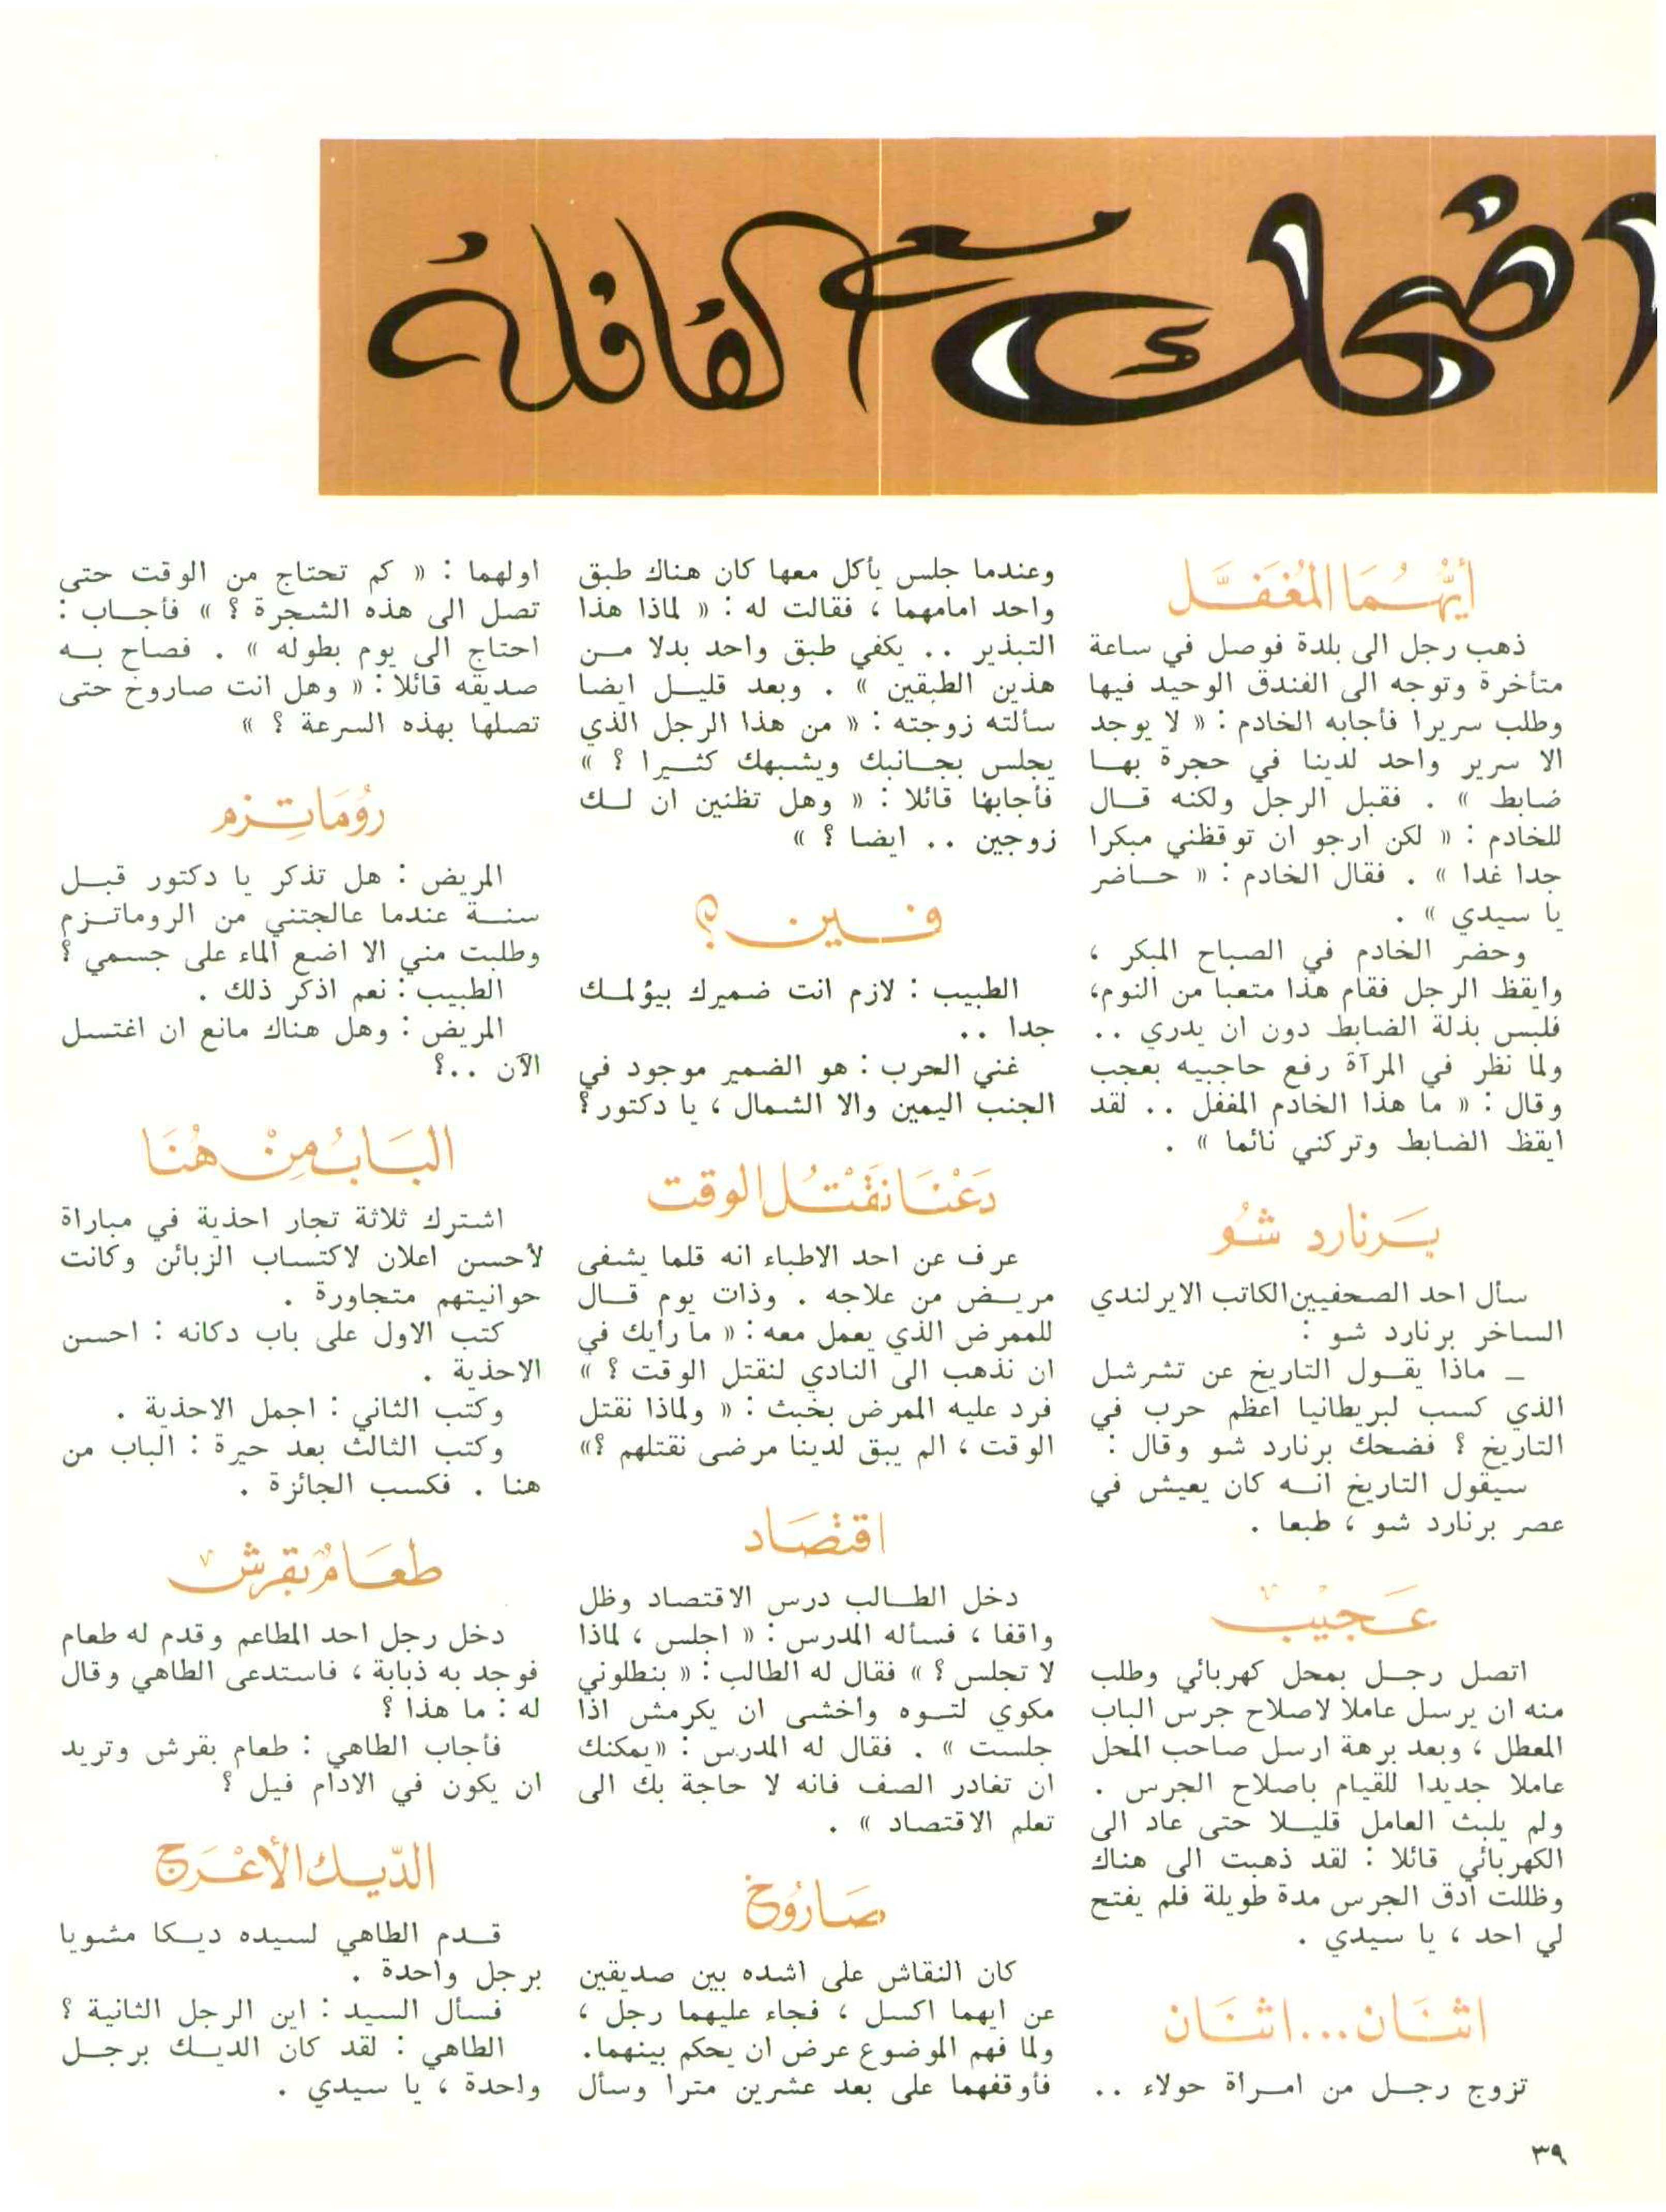 اضحك مع القافلة
أيُّهُمَا المُغَفَّل
ذهب رجل الى بلدة فوصل في ساعة
متأخرة وتوجه الى الفندق الوحيد فيها
وطلب سريرا فأجابه الخادم : « لا يوجد
الا سرير واحد لدينا في حجرة بها
ضابط » . فقبل الرجل ولكنه قال
للخادم : « لكن ارجو ان توقظني مبكرا
جدا غدا » . فقال الخادم : « حاضر
يا سيدي » .
وحضر الخادم في الصباح المبكر ،
وايقظ الرجل فقام هذا متعبا من النوم،
فلبس بذلة الضابط دون ان يدري ..
ولما نظر في المرآة رفع حاجبيه بعجب
وقال : « ما هذا الخادم المغفل .. لقد
ايقظ الضابط وتركني نائما » .
بَرنارد شُو
سأل احد الصحفيين الكاتب الايرلندي
الساخر برنارد شو :
ـ ماذا يقول التاريخ عن تشرشل
الذي كسب لبريطانيا اعظم حرب في
التاريخ ؟ فضحك برنارد شو وقال :
سيقول التاريخ انه كان يعيش في
عصر برنارد شو ، طبعا .
عَجيْب
اتصل رجل بمحل كهربائي وطلب
منه ان يرسل عاملا لاصلاح جرس الباب
المعطل ، وبعد برهة ارسل صاحب المحل
عاملا جديدا للقيام باصلاح الجرس .
ولم يلبث العامل قليلا حتى عاد الى
الكهربائي قائلا : لقد ذهبت الى هناك
وظللت أدق الجرس مدة طويلة فلم يفتح
لي احد ، يا سيدي .
اثنَان...اثنَان
تزوج رجل من امرأة حولاء ..
وعندما جلس يأكل معها كان هناك طبق
واحد امامهما ، فقالت له : « لماذا هذا
التبذير .. يكفي طبق واحد بدلا من
هذين الطبقين » . وبعد قليل ايضا
سألته زوجته : « من هذا الرجل الذي
يجلس بجانبك ويشبهك كثيرا ؟ »
فأجابها قائلا : « وهل تظنين ان لك
زوجين .. ايضا ؟ »
فين ؟
الطبيب : لازم انت ضميرك بيؤلمك
جدا ..
غني الحرب : هو الضمير موجود في
الجنب اليمين والا الشمال ، يا دكتور؟
دَعْنَا نقْتُل الوقت
عرف عن احد الاطباء انه قلما يشفى
مريض من علاجه . وذات يوم قال
للممرض الذي يعمل معه : « ما رأيك في
ان نذهب الى النادي لنقتل الوقت ؟ »
فرد عليه الممرض بخبث : « ولماذا نقتل
الوقت ، الم يبق لدينا مرضى نقتلهم ؟»
اقتصَاد
دخل الطالب درس الاقتصاد وظل
واقفا ، فسأله المدرس : « اجلس ، لماذا
لا تجلس ؟ » فقال له الطالب : « بنطلوني
مكوي لتوه واخشى ان يكرمش اذا
جلست » . فقال له المدرس : «يمكنك
ان تغادر الصف فانه لا حاجة بك الى
تعلم الاقتصاد » .
صَارُوخ
كان النقاش على اشده بين صديقين
عن ايهما اكسل ، فجاء عليهما رجل ،
ولما فهم الموضوع عرض ان يحكم بينهما.
فأوقفهما على بعد عشرين مترا وسأل
اولهما : « كم تحتاج من الوقت حتى
تصل الى هذه الشجرة ؟ » فأجاب :
احتاج الى يوم بطوله » . فصاح به
صديقه قائلا : « وهل انت صاروخ حتى
تصلها بهذه السرعة ؟ »
رُومَاتِزم
المريض : هل تذكر يا دكتور قبل
سنة عندما عالجتني من الروماتزم
وطلبت مني الا اضع الماء على جسمي ؟
الطبيب : نعم اذكر ذلك .
المريض : وهل هناك مانع ان اغتسل
الآن ..؟
البَابُ مِنْ هُنَا
اشترك ثلاثة تجار احذية في مباراة
لأحسن اعلان لاكتساب الزبائن وكانت
حوانيتهم متجاورة .
كتب الاول على باب دكانه : احسن
الاحذية .
وكتب الثاني : اجمل الاحذية .
وكتب الثالث بعد حيرة : الباب من
هنا . فكسب الجائزة .
طعَامٌ بقرش
دخل رجل احد المطاعم وقدم له طعام
فوجد به ذبابة ، فاستدعى الطاهي وقال
له : ما هذا ؟
فأجاب الطاهي : طعام بقرش وتريد
ان يكون في الادام فيل ؟
الدّيك الأعْرَج
قدم الطاهي لسيده ديكا مشويا
برجل واحدة .
فسأل السيد : اين الرجل الثانية ؟
الطاهي : لقد كان الديك برجل
واحدة ، يا سيدي .
٣٩